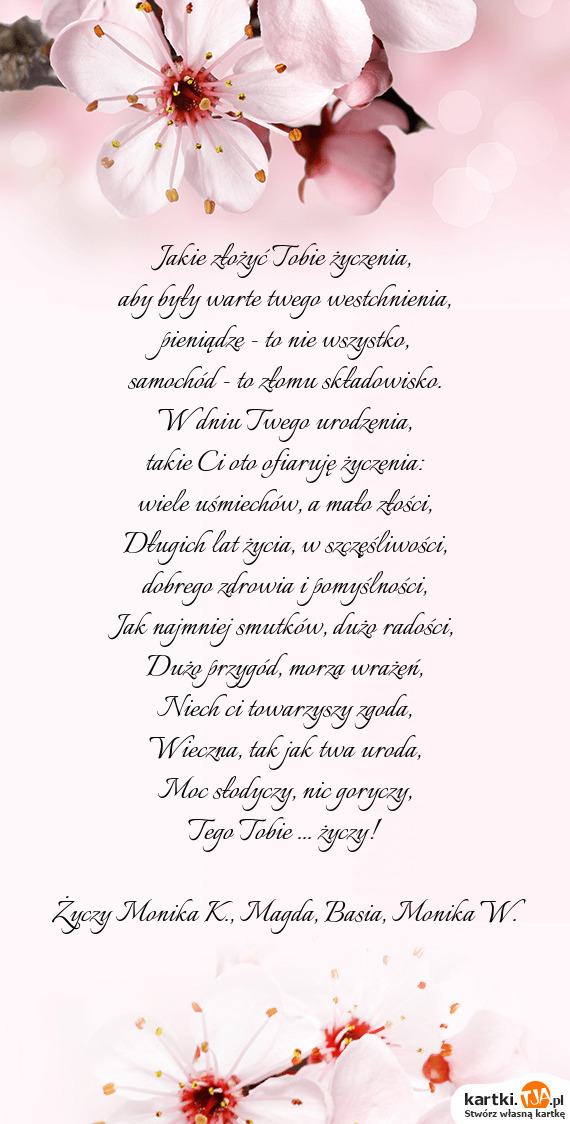 Jakie złożyć Tobie życzenia,
aby były warte twego westchnienia,
pieniądze - to nie wszystko,
samochód - to złomu składowisko.
W dniu Twego urodzenia,
takie Ci oto ofiaruję życzenia:
wiele uśmiechów, a mało złości,
Długich lat życia, w szczęśliwości,
dobrego zdrowia i pomyślności,
Jak najmniej smutków, dużo radości,
Dużo przygód, morza wrażeń,
Niech ci towarzyszy zgoda,
Wieczna, tak jak twa uroda,
Moc słodyczy, nic goryczy,
Tego Tobie ... życzy!
Życzy Monika K., Magda, Basia, Monika W.
kartki.TJA.pl
Stwórz własną kartkę